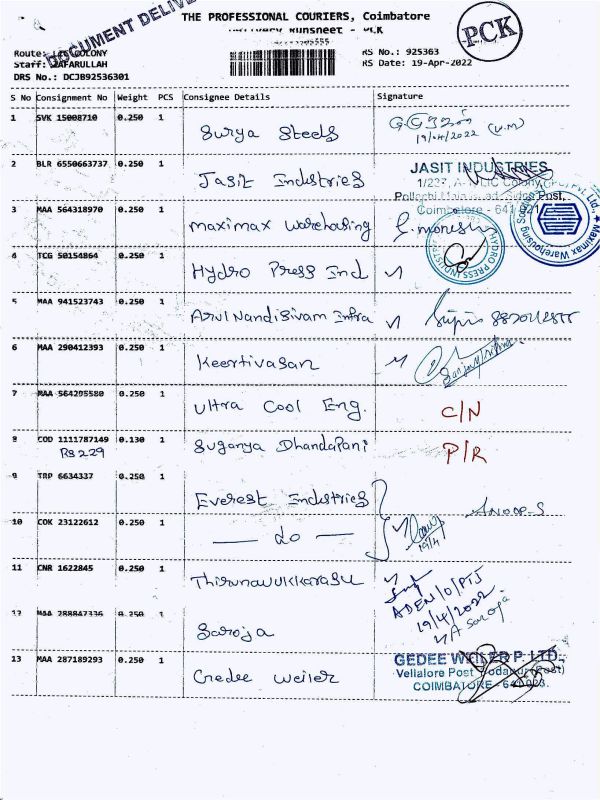 THE PROFESSIONAL COURIERS, Coimbatore
Delivery Runsheet - PCK
PCK
DOCUMENT DELIVE
Route: LIC COLONY
Staff: ZAFARULLAH
DRS No.: DCJB92536301
RS No.: 925363
RS Date: 19-Apr-2022
S No Consignment No Weight PCS Consignee Details Signature
1 SVK 15008710 0.250 1 Surya Steels
19/04/2022 (V.M)
2 BLR 6550663737 0.250 1 Jasit Industries
JASIT INDUSTRIES
1/237, A- LIC Colony
Pollachi Main Road, Post,
Coimbatore - 641 021
3 MAA 564318970 0.250 1 Maximax Warehousing
Maximax Warehousing
4 TCG 50154864 0.250 1 Hydro Press Ind
HYDRO PRESS INDUSTRIES
5 MAA 941523743 0.250 1 Arul Nandisivam Infra
6 MAA 290412393 0.250 1 Keertivasan
7 MAA 564205580 0.250 1 Ultra Cool Eng. C/N
8 COD 1111787149 0.130 1 Suganya Dhandapani P/R
RS 229
9 TRP 6634337 0.250 1 Everest Industries ANOOP-S
10 COK 23122612 0.250 1 — do —
19/4
11 CNR 1622845 0.250 1 Thirunavukkarasu
ADEN/O/PTJ
19/4/2022
12 MAA 288847336 0.250 1 Saroja
A Saroja
13 MAA 287189293 0.250 1 Gedee Weiler
GEDEE WEILER P LTD.,
Vellalore Post Podanur (Post)
COIMBATORE - 641 023.